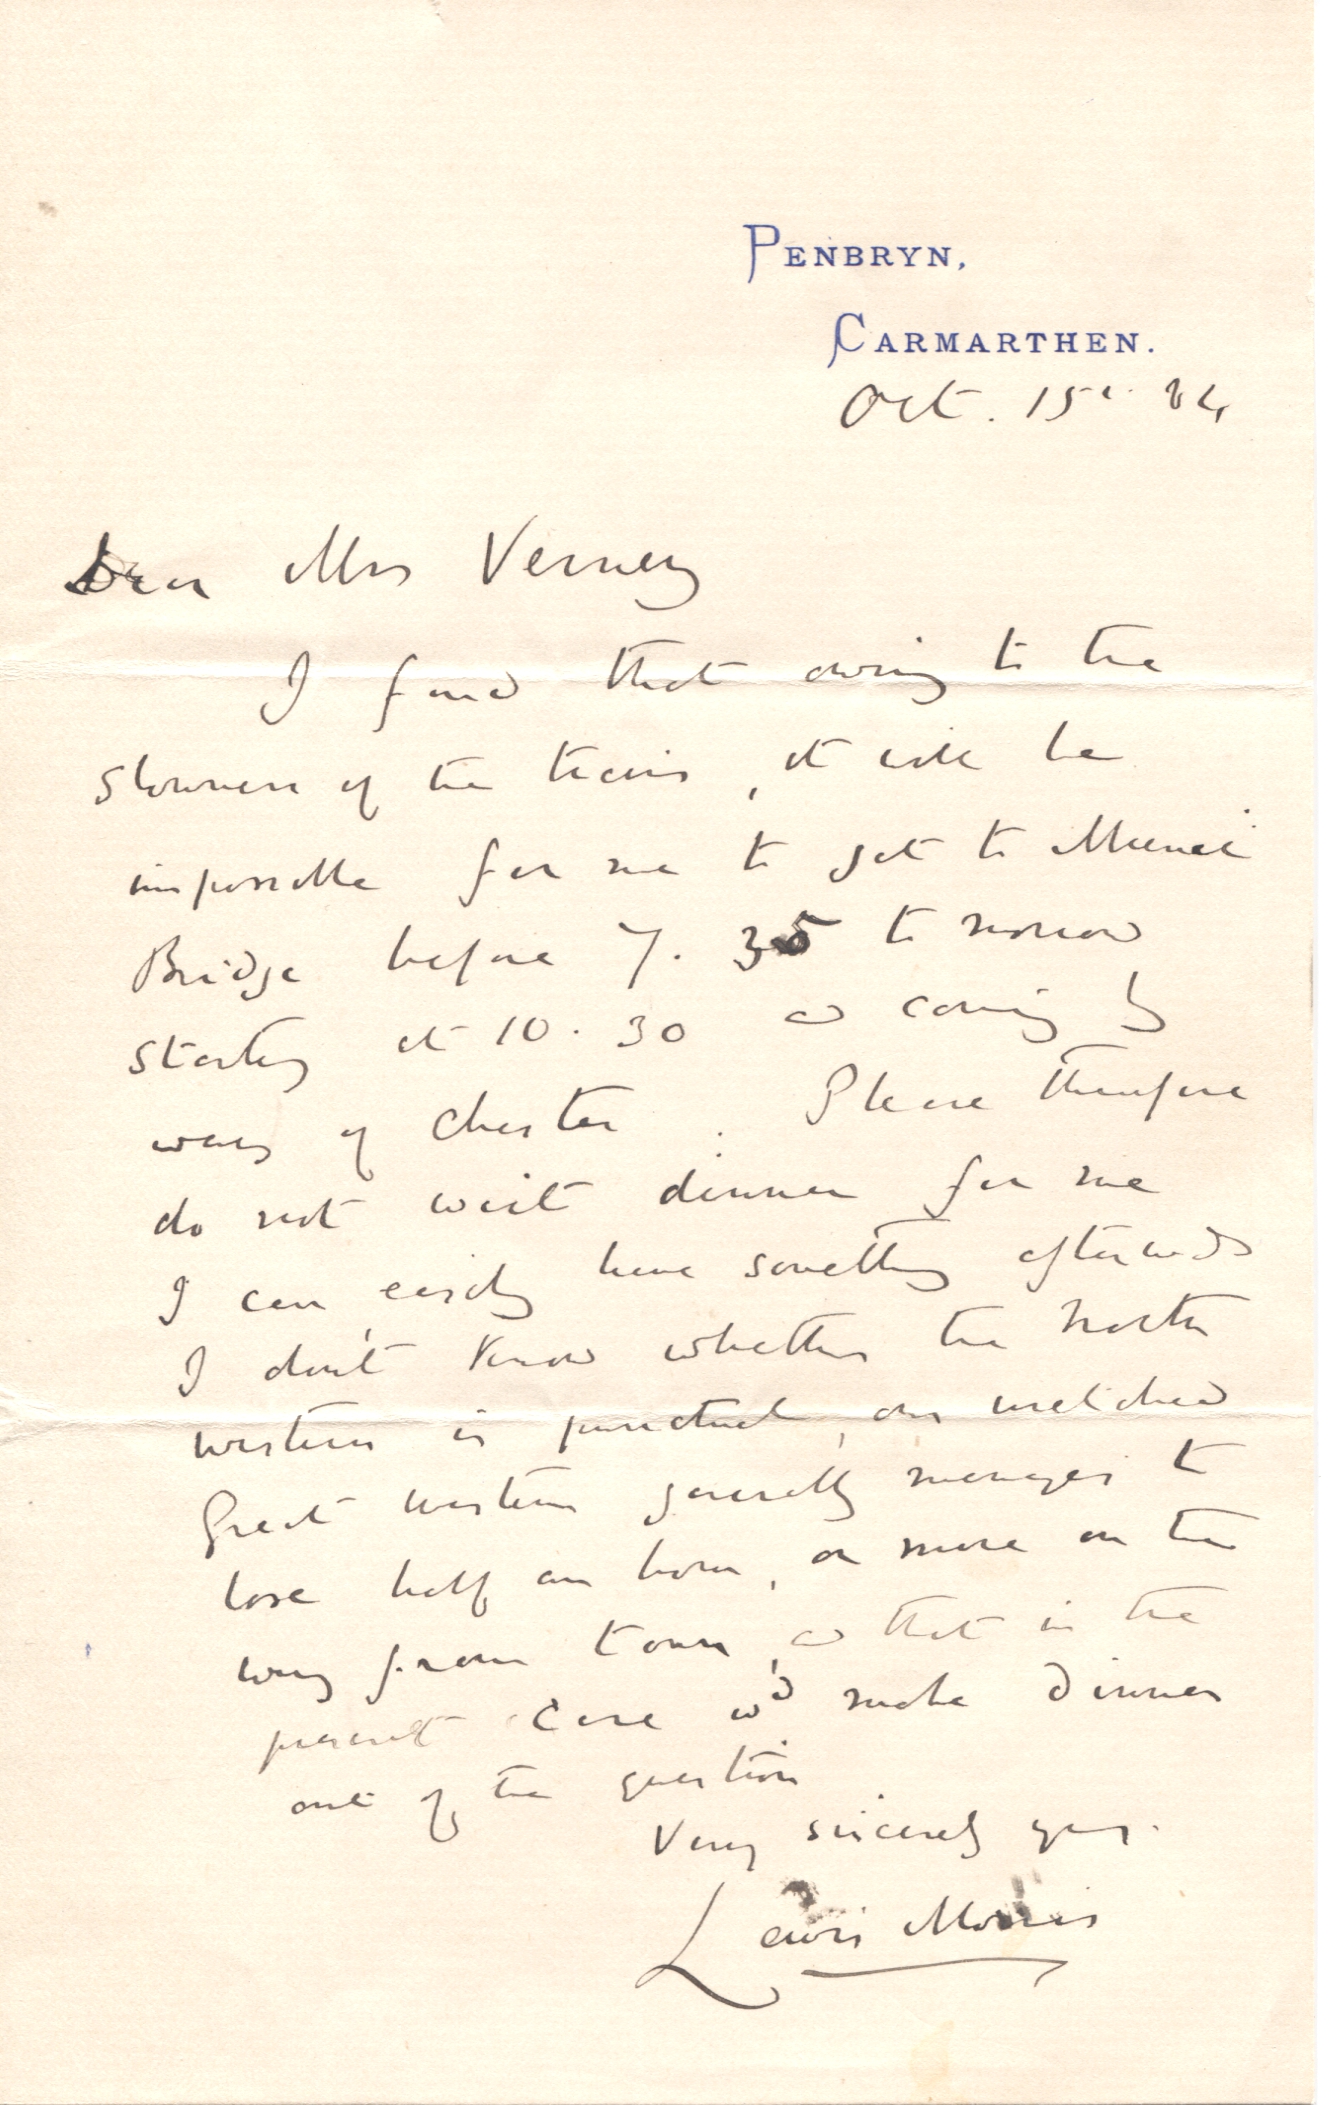 PENBRYN,
CARMARTHEN.
Oct. 15th 84
Dear Mrs Verney
I find that owing to the
slowness of the trains, it will be
impossible for me to get to Menai
Bridge before 7.35 to morrow
starting at 10.30 and coming by
way of Chester. Please therefore
do not wait dinner for me
I can easily have something afterwards
I don't know whether the North
western is punctual, our wretched
Great western generally manages to
lose half an hour, or more on the
way from town, and that in the
present case wd make dinner
out of the question
Very sincerely yours.
Lewis Morris